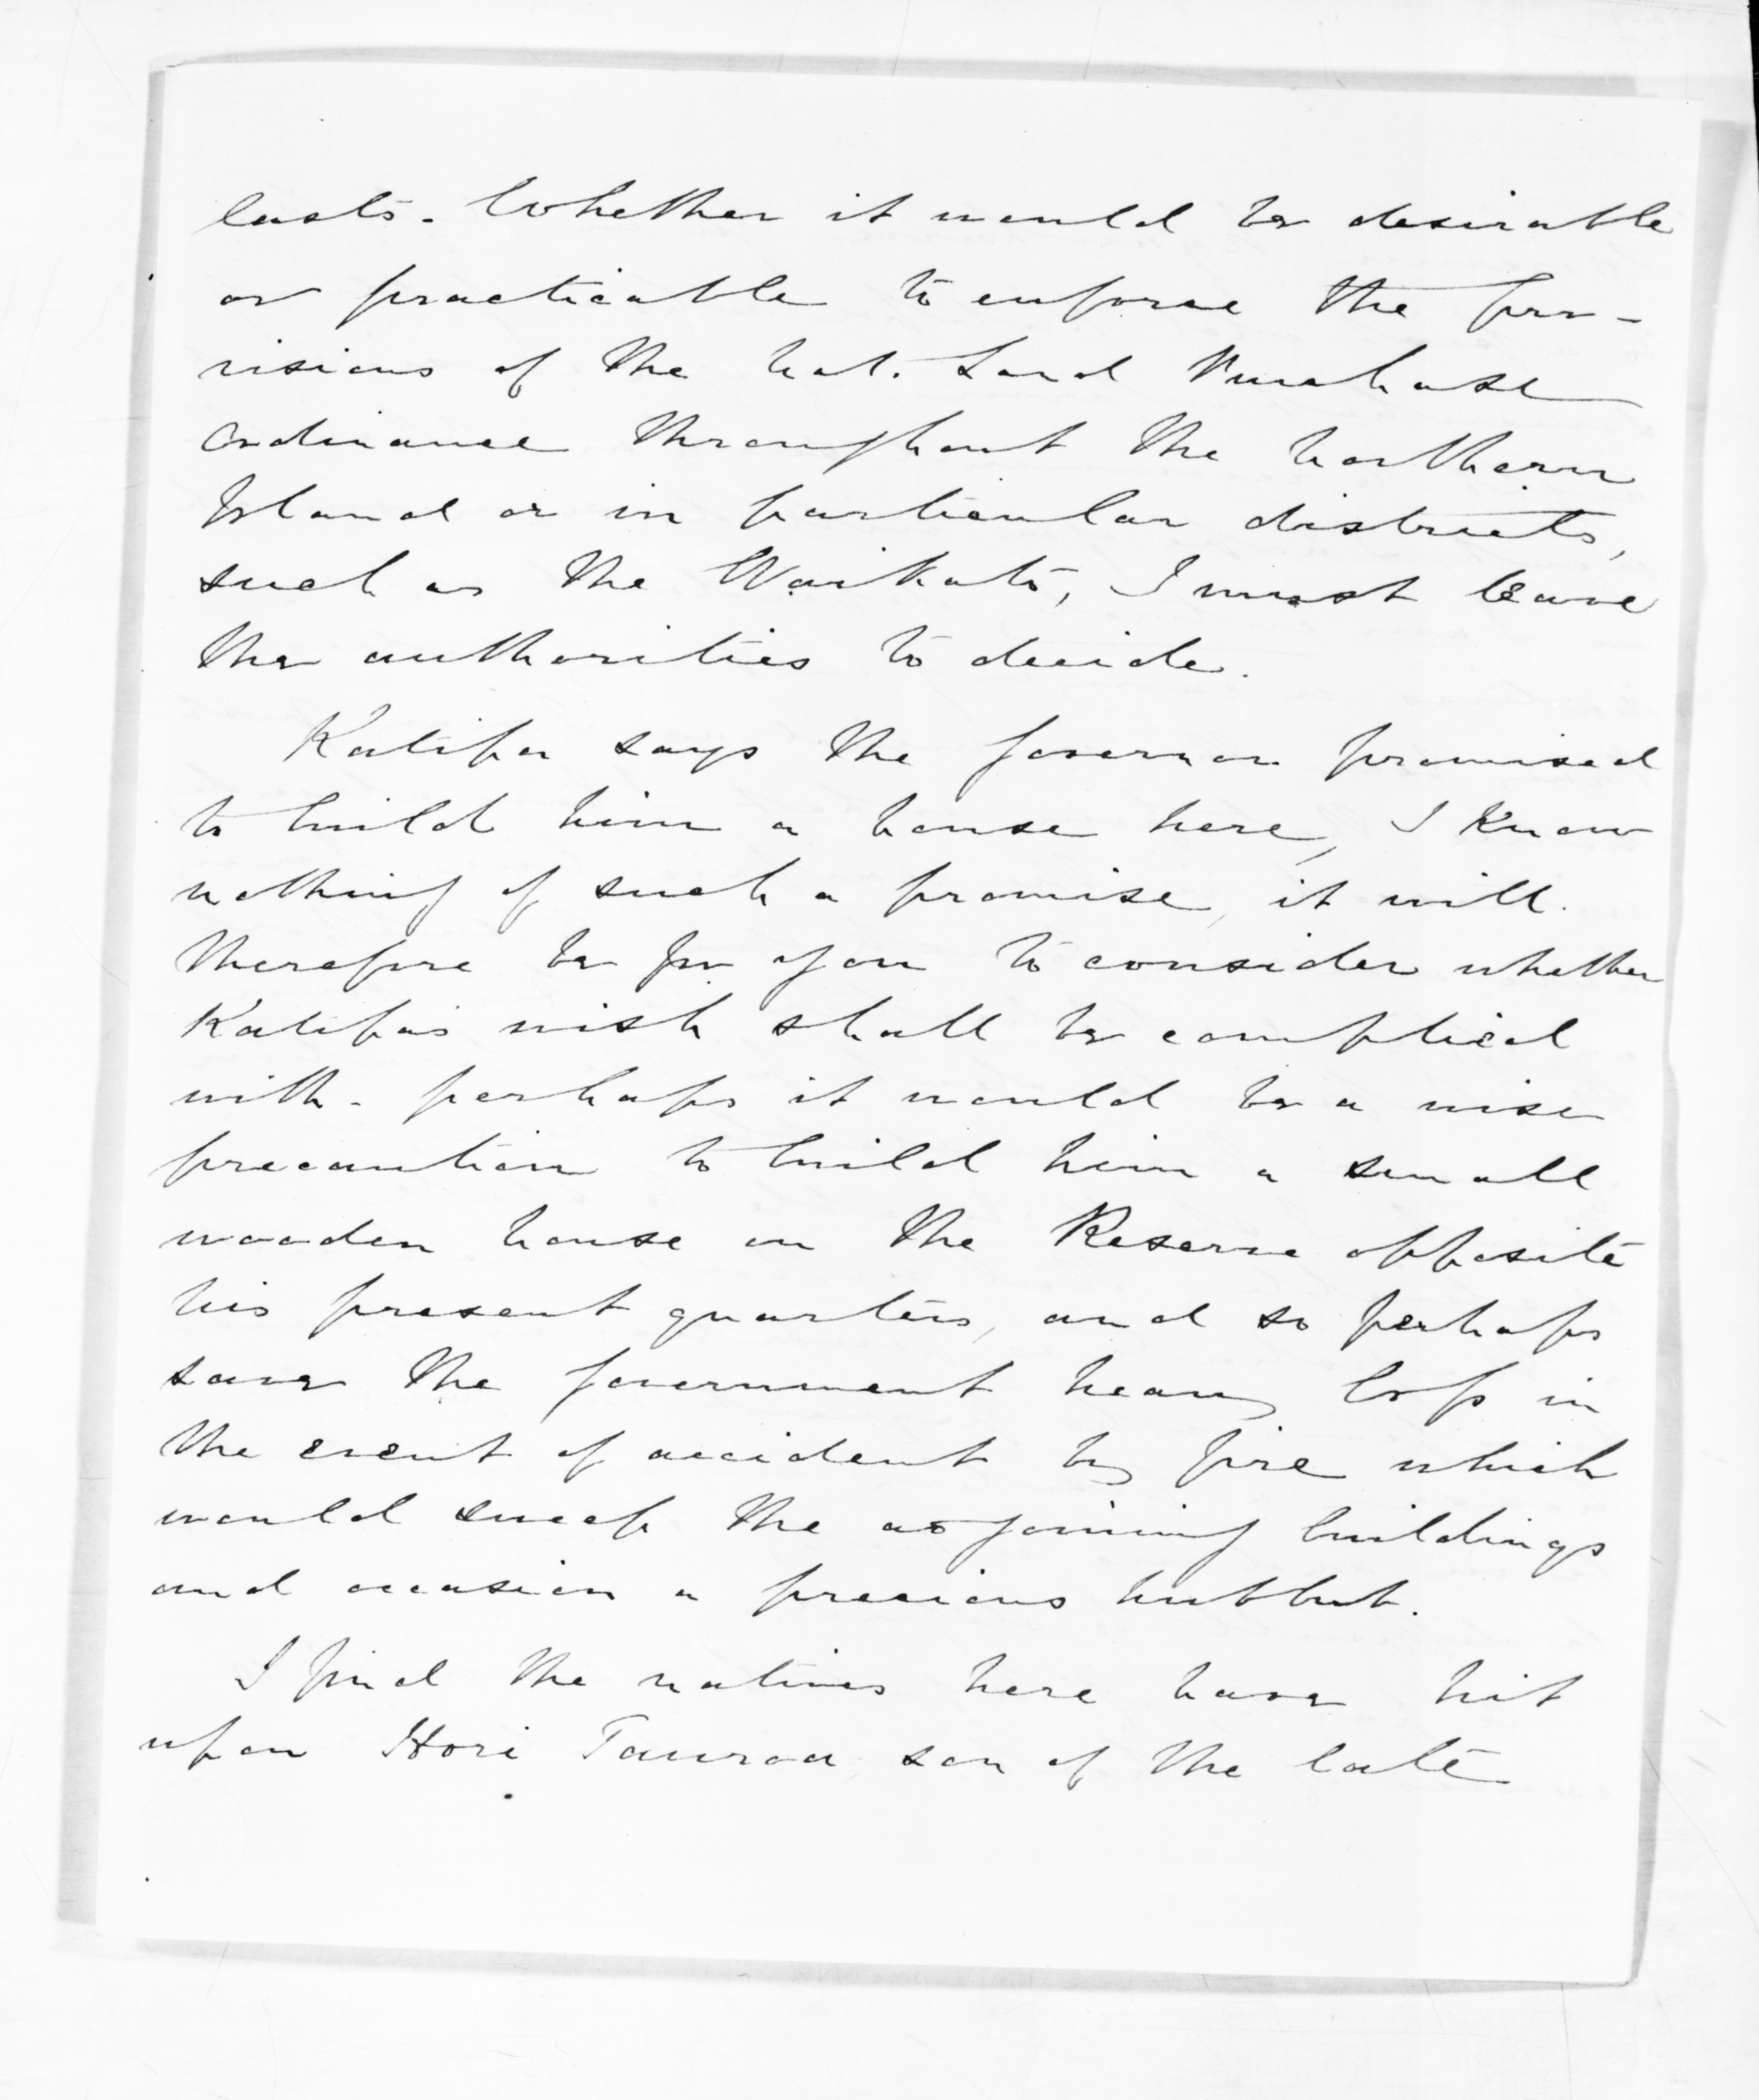 lasts. Whether it would be desirable
or practicable to enforce the pro-
visions of the Nat. Land Purchase
Ordinance throughout the Northern
Island or in particular districts,
such as the Waikato, I must leave
the authorities to decide.
Katipa says the Governor promised
to build him a house here, I know
nothing of such a promise, it will
therefore be for you to consider whether
Katipa's wish shall be complied
with - perhaps it would be a wise
precaution to build him a small
wooden house on the Reserve opposite
his present quarters, and so perhaps
save the Government heavy loss in
the event of accident by fire which
would sweep the adjoining buildings
and occasion a precious hubbub.
I find the natives here have hit
upon Hori Tauroa son of the late